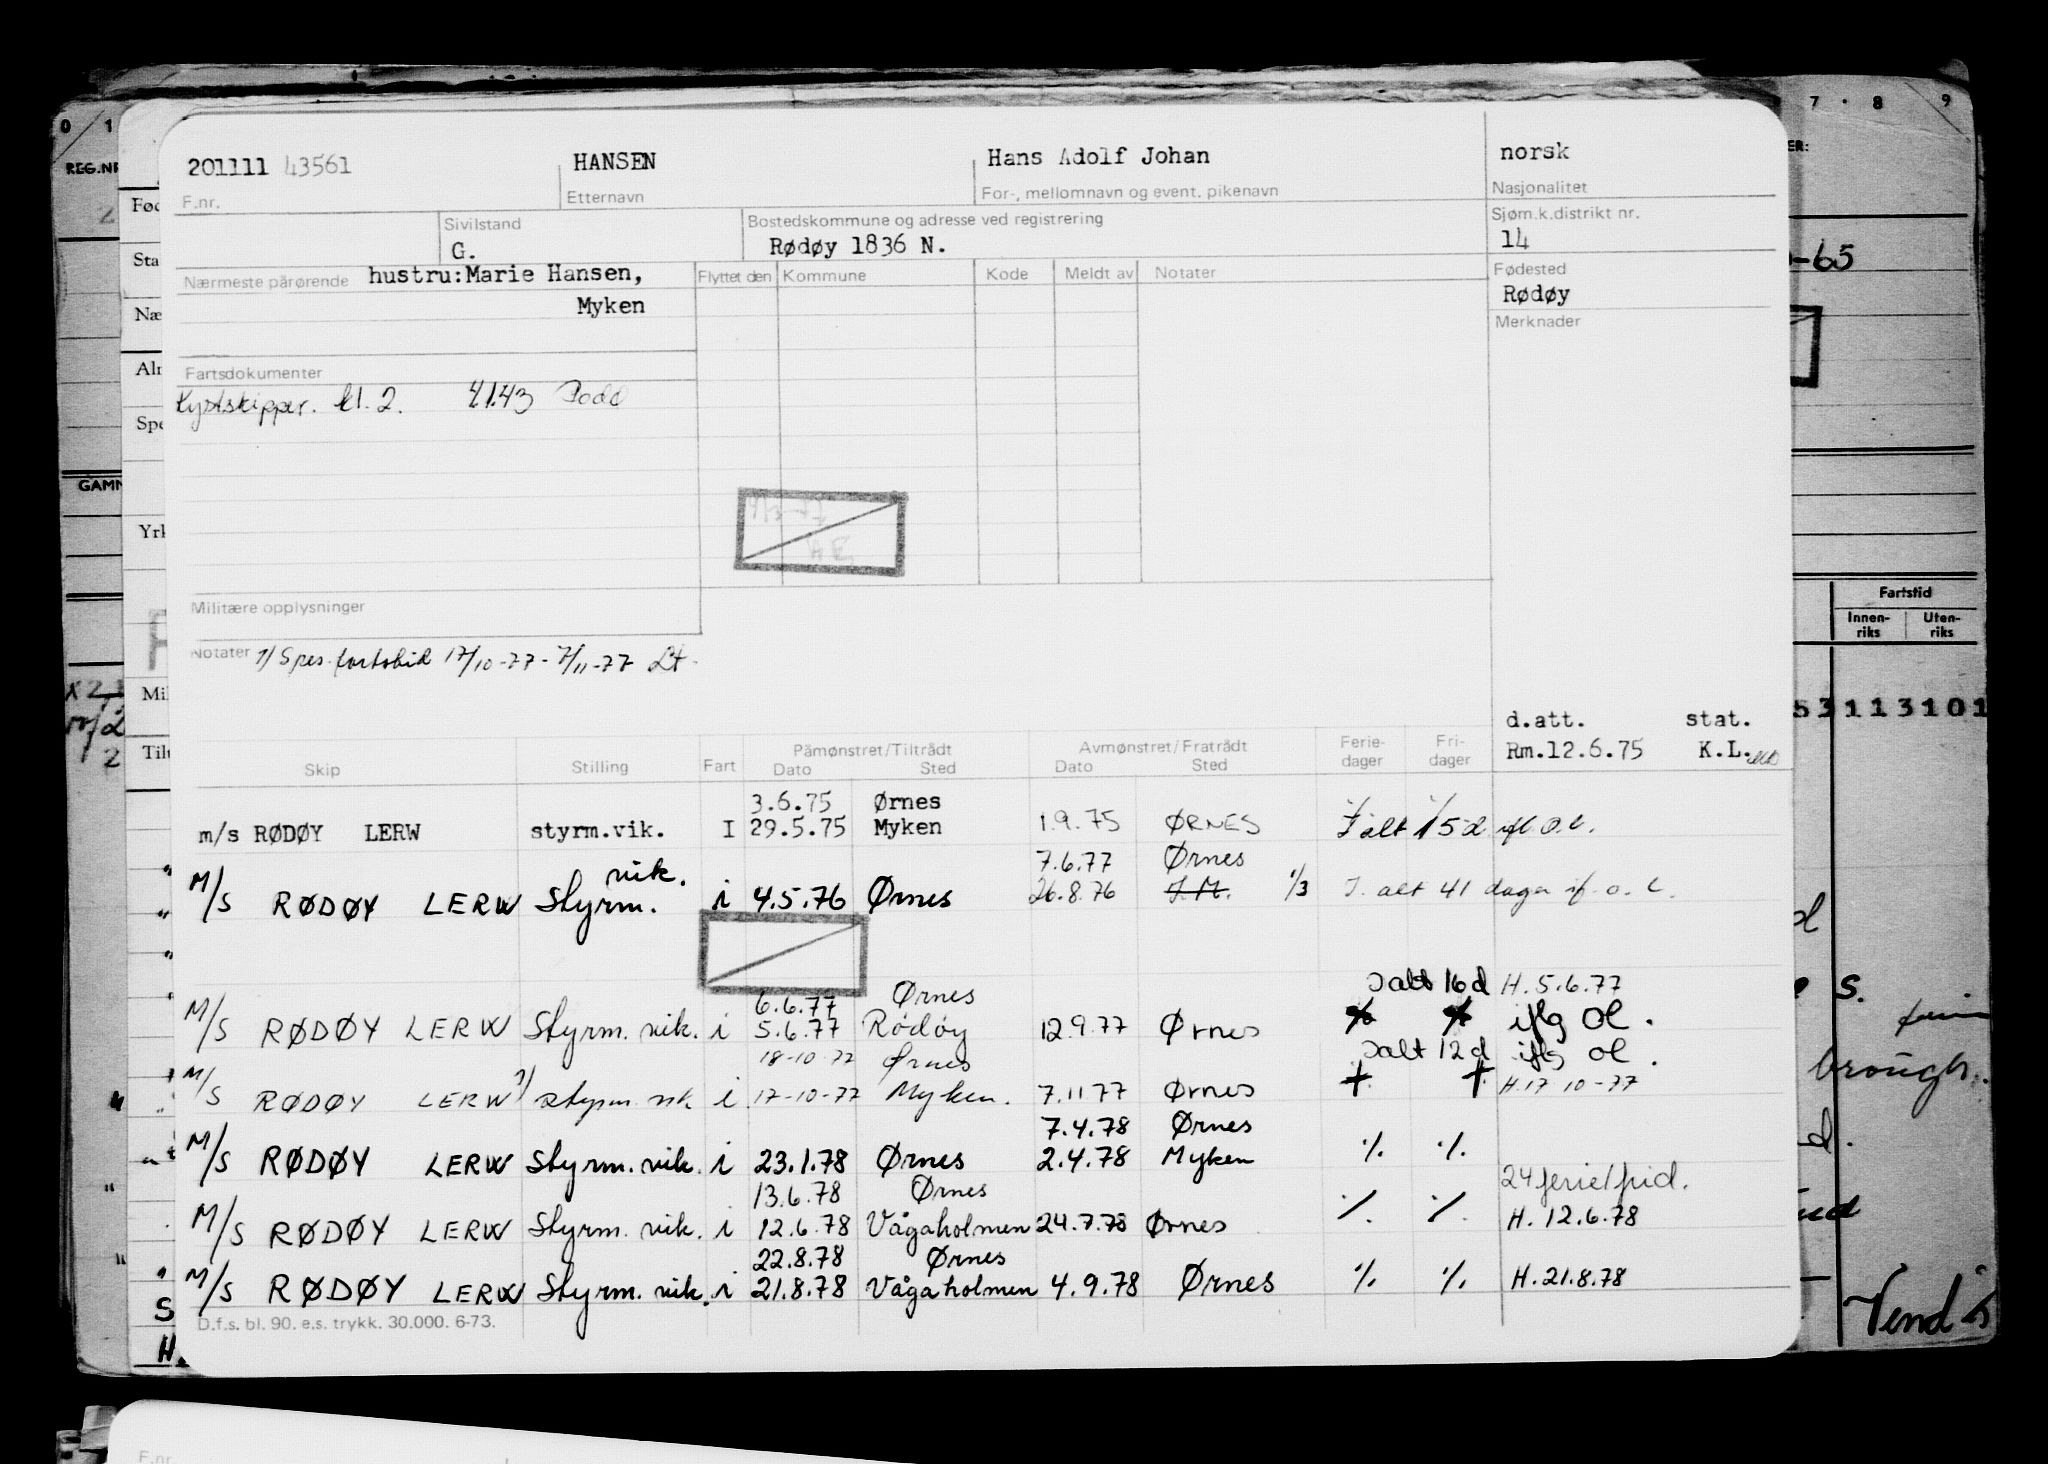 201111 43561 HANSEN Hans Adolf Johan norsk
F.nr. Etternavn For-, mellomnavn og event. pikenavn Nasjonalitet
Sivilstand Bostedskommune og adresse ved registrering Sjøm.k.distrikt nr.
G. Rødøy 1836 N. 14
Nærmeste pårørende hustru:Marie Hansen, Flyttet den Kommune Kode Meldt av Notater Fødested
Myken Rødøy
Merknader
Fartsdokumenter
Kystskipper. kl. 2. 4.1.43 Bodø
Militære opplysninger
Notater 1/ Spes. fartstid 17/10-77 - 7/11-77 Lt.
d.att. stat.
Rm.12.6.75 K.L.
Påmønstret/Tiltrådt Avmønstret/Fratrådt Ferie- Fri-
Skip Stilling Fart Dato Sted Dato Sted dager dager
3.6.75 Ørnes
m/s RØDØY LERW styrm.vik. I 29.5.75 Myken 1.9.75 ØRNES I alt 15 d ifl. o.l.
vik. 7.6.77 Ørnes
M/S RØDØY LERW Styrm. i 4.5.76 Ørnes 26.8.76 1/3 I. alt 41 dager if. o. l.
6.6.77 Ørnes Ialt 16 d H. 5.6.77
M/S RØDØY LERW Styrm. vik. i 5.6.77 Rødøy 12.9.77 Ørnes iflg OL.
18-10-77 Ørnes Ialt 12 d iflg OL.
M/S RØDØY LERW 1) styrm. vik i 17-10-77 Myken. 7.11.77 Ørnes H.17 10-77
7.4.78 Ørnes
M/S RØDØY LERW Styrm. vik. i 23.1.78 Ørnes 2.4.78 Myken ./. ./.
13.6.78 Ørnes 24 ferie/frid.
M/S RØDØY LERW Styrm. vik. i 12.6.78 Vågaholmen 24.7.78 Ørnes ./. ./. H. 12.6.78
22.8.78 Ørnes
M/S RØDØY LERW Styrm. vik. i 21.8.78 Vågaholmen 4.9.78 Ørnes ./. ./. H. 21.8.78
D.f.s. bl. 90. e.s. trykk. 30.000. 6-73.
0 1
REG.NR
Fød
Sta
Næ
Alm
Spe
GAMM
Yrk
Mil
Tilt
7 8 9
-65
Fartstid
Innen-
riks
Uten-
riks
53113101
s.
Vend
F.nr